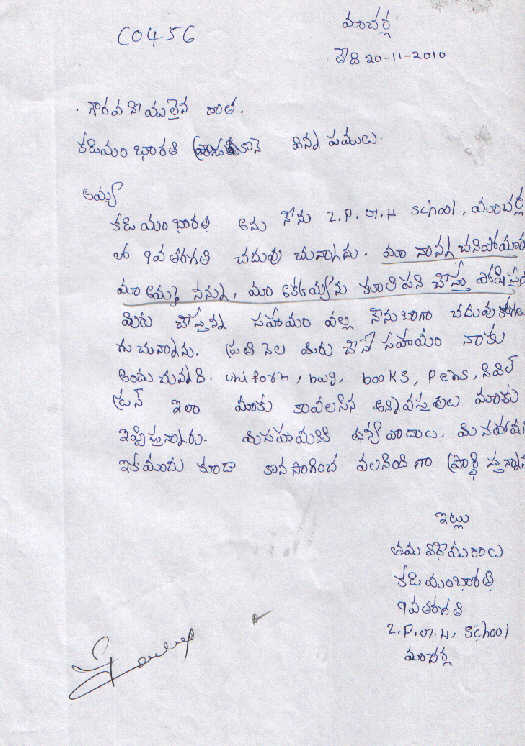 C0456
మాచర్ల
తేది 20-11-2010
గౌరవనీయులైన దాత.
కడియం భారతి వ్రాయునది విన్నపములు.
అయ్యా
కడియం భారతి అను నేను Z.P.G.H School, మాచర్ల
లో 9వ తరగతి చదువుచున్నాను. మా నాన్న చనిపోయినారు
మా అమ్మ నన్ను, మా తమ్ముడును కూలి పని చేస్తూ పోషిస్తుంది
మీరు చేస్తున్న సహాయం వల్ల నేను బాగా చదువుకో
గలుగుచున్నాను. ప్రతి నెల మీరు చేసే సహాయం నాకు
అందుచున్నది. uniform, bag, books, Pens,
ఇలా మాకు కావలసిన అన్ని వస్తువులు మాకు
ఇస్తున్నారు. మీ సహాయానికి ధన్యవాదాలు. మీ సహాయం
ఇక ముందు కూడా కొనసాగించ వలసిందిగా ప్రార్థిస్తున్నాను
ఇట్లు
తమ విధేయురాలు
కడియం భారతి
9వ తరగతి
Z.P.G.H. School
మాచర్ల